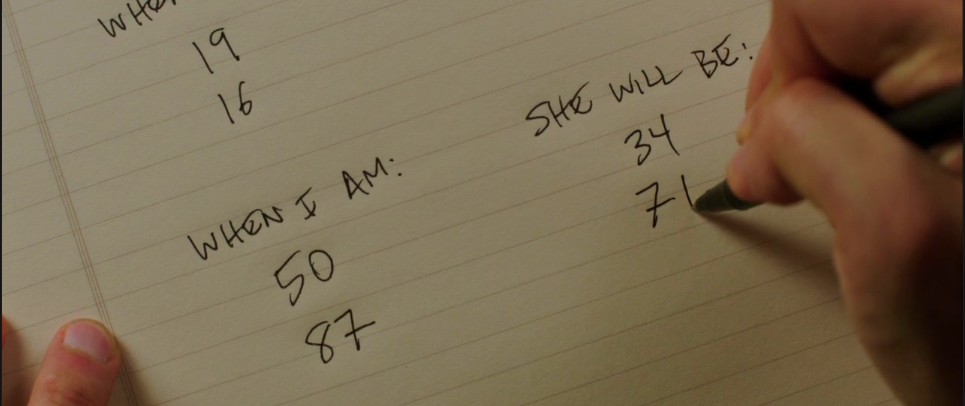 WHEN
19
16
WHEN I AM:
50
87
SHE WILL BE:
34
71